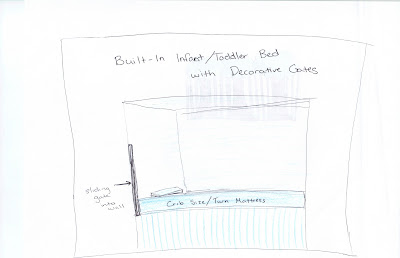 Built-In Infant/Toddler Bed
with Decorative Gates
sliding
gate
into
wall
Crib Size/Twin Mattress